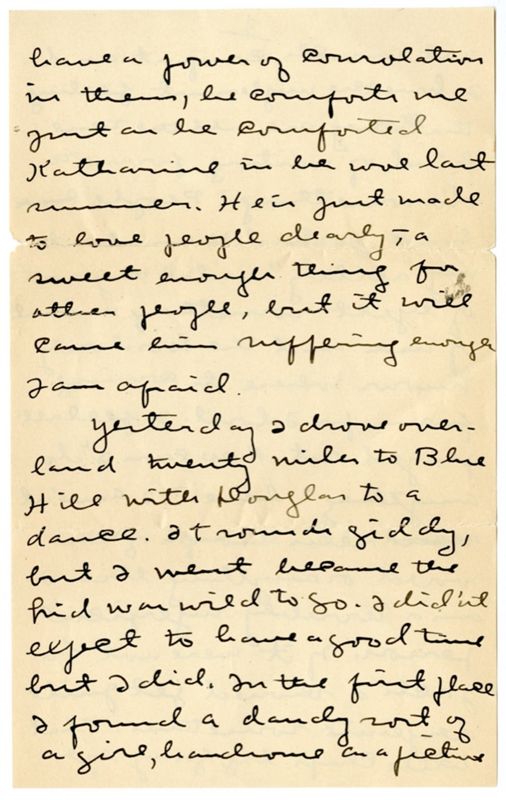 have a power of consolation
in them, he comforts me
just as he comforted
Katharine in her woe last
summer. He is just made
to love people dearly, – a
sweet enough thing for
other people, but it will
cause him suffering enough
I am afraid.
Yesterday I drove over-
land twenty miles to Blue
Hill with Douglas to a
dance. It sounds giddy,
but I went because the
kid was wild to go. I did'nt
expect to have a good time
but I did. In the first place
I found a dandy sort of
a girl, handsome as a picture